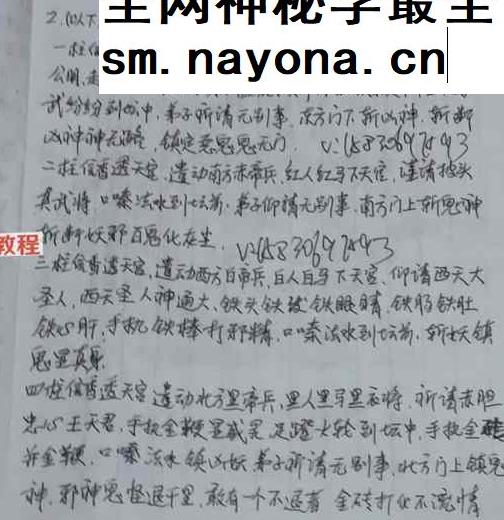 全网神秘学最全
sm.nayona.cn
2.(以下
一柱信
公用,走
武纷纷到坛中,弟子祈请无别事,东方门下斩凶神,斩断
凶神神无路,镇定恶鬼鬼无门. V:15830692493
二柱信香透天宫,遣动南方赤帝兵,红人红马下天宫,谨请披头
真武将,口嗪法水到坛前,弟子仰请无别事,南方门上斩恶神
斩断妖邪百鬼化灰尘. V:15830692493
教程
三柱信香透天宫,遣动西方白帝兵,白人白马下天宫,仰请西天大
圣人,西天圣人神通大,铁头铁 铁眼睛,铁肠铁肚
铁心肝,手执铁棒打邪精,口嗪法水到坛前,斩妖镇
鬼显真身
四柱信香透天宫遣动北方黑帝兵,黑人黑马黑衣将,祈请赤胆
忠心王天君,手执金鞭显威灵,足蹬火轮到坛中,手执金砖
并金鞭,口嗪法水镇凶妖,弟子祈请无别事,北方门上镇鬼
神,邪神鬼怪退千里,敢有一个不退者,金砖打化不流情